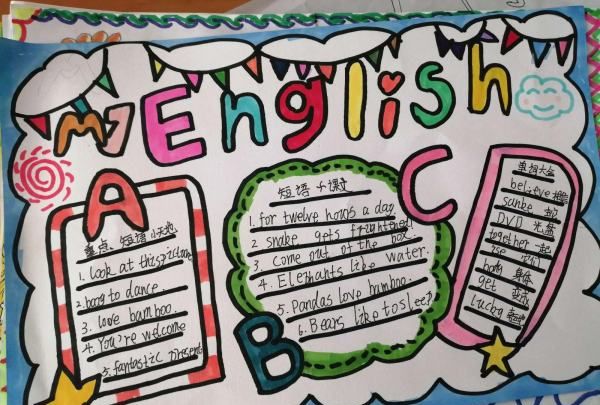 My English
A
重点短语小天地
1. Look at this picture
2. bong to dance
3. love bamboo.
4. You're welcome
5. fantastic present
B
短语小课
1. for twelve hours a day
2 snake gets frightened!
3. Come out of the box.
4. Elephants like water.
5. Pandas love bamboo.
6. Bears like to sleep
C
单词大全
believe 相信
DVD 光盘
together 一起
body 身体
get 变成